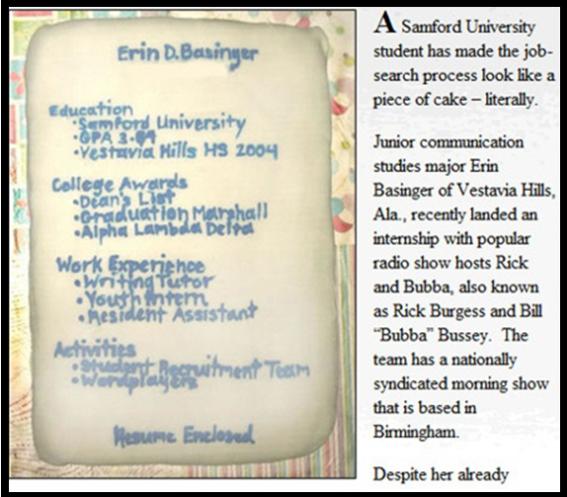 Erin D. Basinger
Education
•Samford University
•GPA
•Vestavia Hills HS 2004
College Awards
•Dean's List
•Graduation Marshall
•Alpha Lambda Delta
Work Experience
•Writing Tutor
•Youth Intern
•Resident Assistant
Activities
•Student Recruitment Team
•Wordplayers
Resume Enclosed
A Samford University
student has made the job-
search process look like a
piece of cake – literally.
Junior communication
studies major Erin
Basinger of Vestavia Hills,
Ala., recently landed an
internship with popular
radio show hosts Rick
and Bubba, also known
as Rick Burgess and Bill
"Bubba" Bussey. The
team has a nationally
syndicated morning show
that is based in
Birmingham.
Despite her already